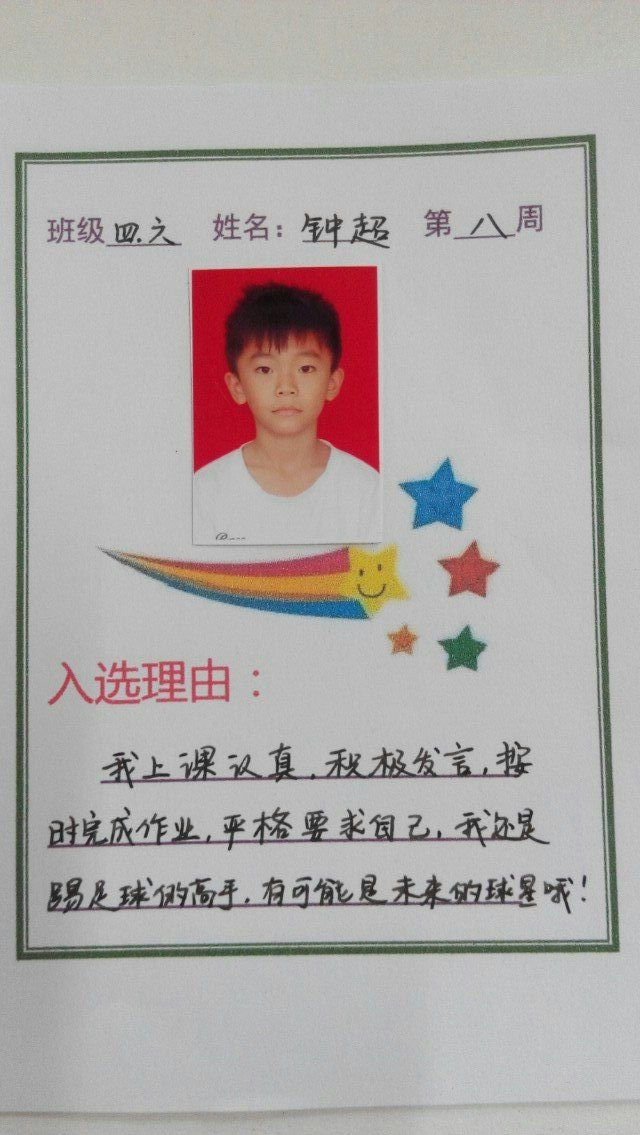 班级四.六 姓名:钟超 第八周
入选理由:
我上课认真,积极发言,按
时完成作业,严格要求自己,我还是
踢足球的高手,有可能是未来的球星哦!